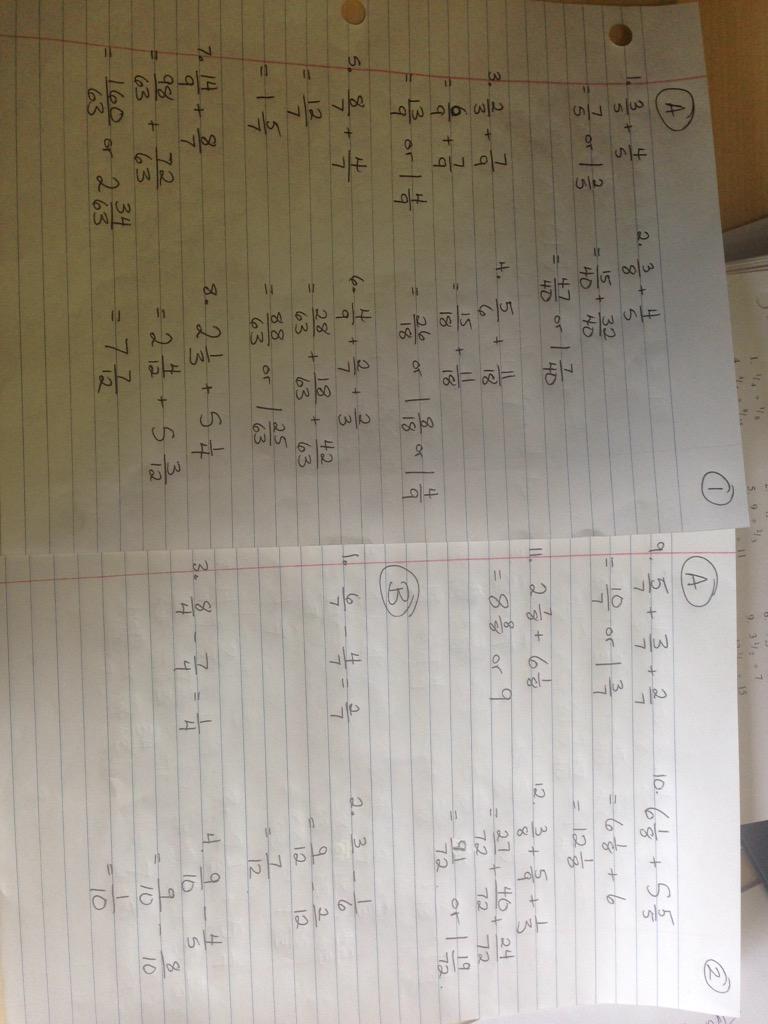 A
1
1. 3/5 + 4/5
= 7/5 or 1 2/5
2. 3/8 + 4/5
= 15/40 + 32/40
= 47/40 or 1 7/40
3. 2/3 + 7/9
= 6/9 + 7/9
= 13/9 or 1 4/9
4. 5/6 + 11/18
= 15/18 + 11/18
= 26/18 or 1 8/18 or 1 4/9
5. 8/7 + 4/7
= 12/7
= 1 5/7
6. 4/9 + 2/7 + 2/3
= 28/63 + 18/63 + 42/63
= 88/63 or 1 25/63
7. 14/9 + 8/7
= 98/63 + 72/63
= 160/63 or 2 34/63
8. 2 1/3 + 5 1/4
= 2 4/12 + 5 3/12
= 7 7/12
A
2
9. 5/7 + 3/7 + 2/7
= 10/7 or 1 3/7
10. 6 1/8 + 5 5/5
= 6 1/8 + 6
= 12 1/8
11. 2 7/8 + 6 1/8
= 8 8/8 or 9
12. 3/8 + 5/9 + 1/3
= 27/72 + 40/72 + 24/72
= 91/72 or 1 19/72
B
1. 6/7 - 4/7 = 2/7
2. 3 - 1/6
= 9/12 - 2/12
= 7/12
3. 8/4 - 7/4 = 1/4
4. 9/10 - 4/5
= 9/10 - 8/10
= 1/10